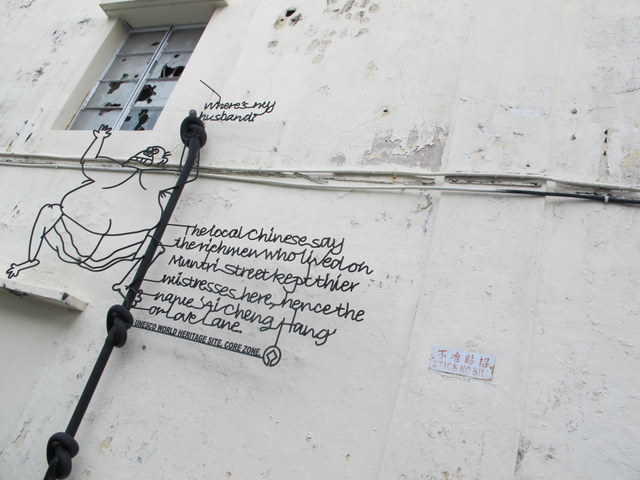 Where's my
husband?
The local Chinese say
the rich men who lived on
Muntri street kept thier
mistresses here, hence the
name 'Ai Cheng Hang
or Love Lane.
UNESCO WORLD HERITAGE SITE. CORE ZONE.
不准贴招
STICK NO BILL